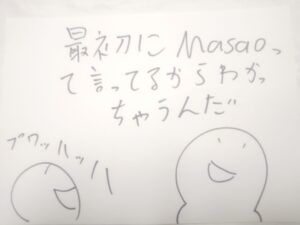 最初にMasaoっ
て言ってるからわかっ
ちゃうんだ
ブワッハッハ